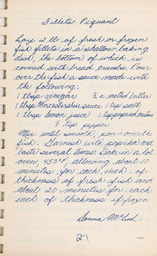 Fillets Piquant
Lay 2 lb. of fresh or frozen
fish fillets in a shallow baking
dish, the bottom of which is
covered with bread crumbs. Pour
over the fish a sauce made with
the following:
1 tbsp vinegar 2 c. melted butter
1 tbsp Worcestershire sauce 1 tsp salt
1 tbsp lemon juice 1 tsp prepared mustard
1 tsp pepper
Mix until smooth, pour over the
fish. Garnish with paprika and
baste several times. Bake in a hot
oven, 450°F, allowing about 10
minutes for each inch of
thickness of fresh fish and
about 20 minutes for each
inch of thickness if frozen
Donna
27